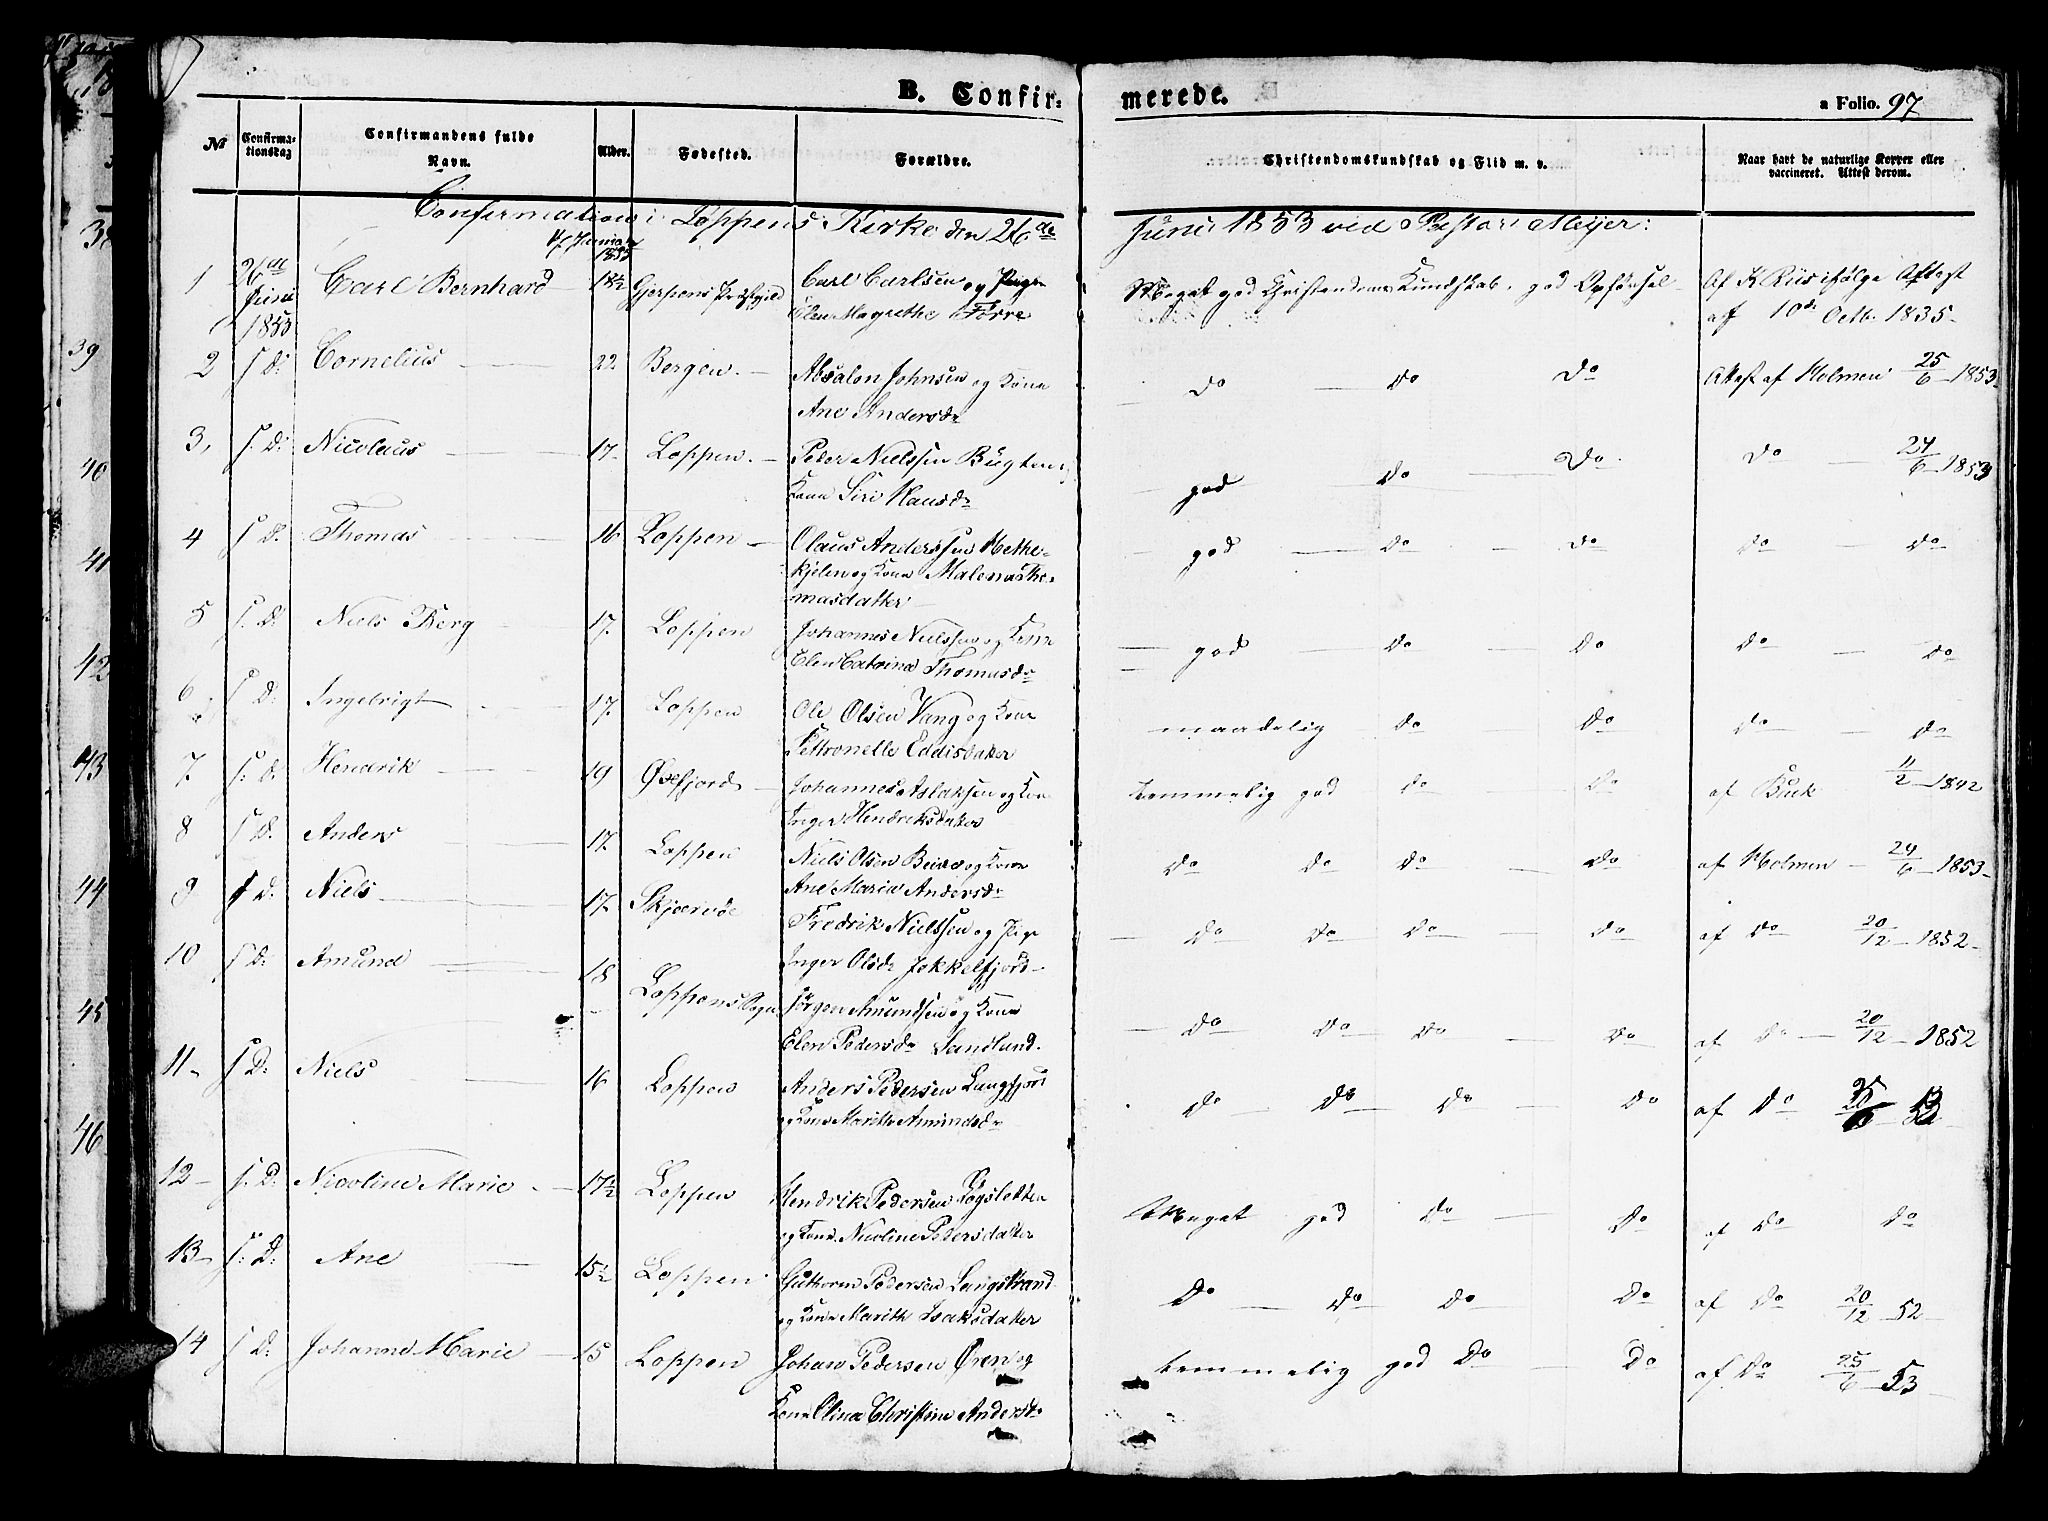 B. Confirmerede.
a Folio. 97
№
Confirmationsdag
Confirmandens fulde Navn.
Alder.
Fødested.
Forældre.
Christendomskundskab og Flid m. v.
Naar havt de naturlige Kopper eller vaccineret. Attest derom.
Confirmation i Loppens Kirke den 26de Juni 1853 ved Pastor Meyer:
1 26de Juni 1853 Carl Bernhard 18½ Gjerpens Præstgjeld Carl Carlsen og Pige Meget god Christendoms Kundskab, god Opførsel Af K Riis ifølge Attest
Elen Magrethe Torre af 10de Octb. 1835
2 s. D. Cornelius 22 Bergen. Absalon Johnsen og Kone Do Do Do Attest af Holmen 25/6 1853
Ane Andersdr
3, s. D. Nicolaus 17 Loppen. Peder Nielssen Bugten og god Do Do Do 24/6 1853
Kone Siri Hansdr
4 s D. Thomas 16 Loppen Olaus Anderssen Methe-
kjelen og Kone Malena Tho- god Do Do Do Do
masdatter
5 s. D. Niels Berg 17. Loppen Johannes Nielssen og Kone god Do Do Do Do
Elen Catrina Thomasdr
6 s D. Ingebrigt 17. Loppen Ole Olsen Vang og Kone maadelig Do Do Do Do
Pettronelle Eddisdatter
7. s. D. Hendrik 19 Øxefjord Johannes Aslaksen og Kone temmelig god Do Do af Buck 11/2 1842
Inger Hendriksdatter
8 s D. Anders 17 Loppen Niels Olsen og Kone Do Do Do Do af Holmen 24/6 1853
Ane Maria Andersdr
9 s D. Niels 17. Skjærvøe Fredrik Nielssen og Pige Do Do Do Do af Do 20/12 1852
Inger Olsdr Jøkkelfjord
10 s D. Amund 18 Loppens Sogn Jørgen Amundsen og Kone Do Do Do Do af Do 20/12 1852
Elen Pedersdr Sandland.
11 s D. Niels 16 Loppen Anders Pedersen Langfjord Do Do Do Do af Do
og Kone Marith Amundsdr
12 s. D. Nicoline Marie 17½ Loppen Hendrik Pedersen Røgsletten Meget god Do Do af Do Do
og Kone Nicoline Pedersdatter
13 s. D. Ane 15½ Loppen Guthorm Pedersen Langstrand Do Do Do Do af Do 20/12 52
og Kone Marith Isaksdatter
14 s D. Johanne Marie 15 Loppen Johan Pedersen Øren og temmelig god Do Do af Do 25/6 53
Kone Olina Christine Andersdr
39
40
41
42
43
44
45
46